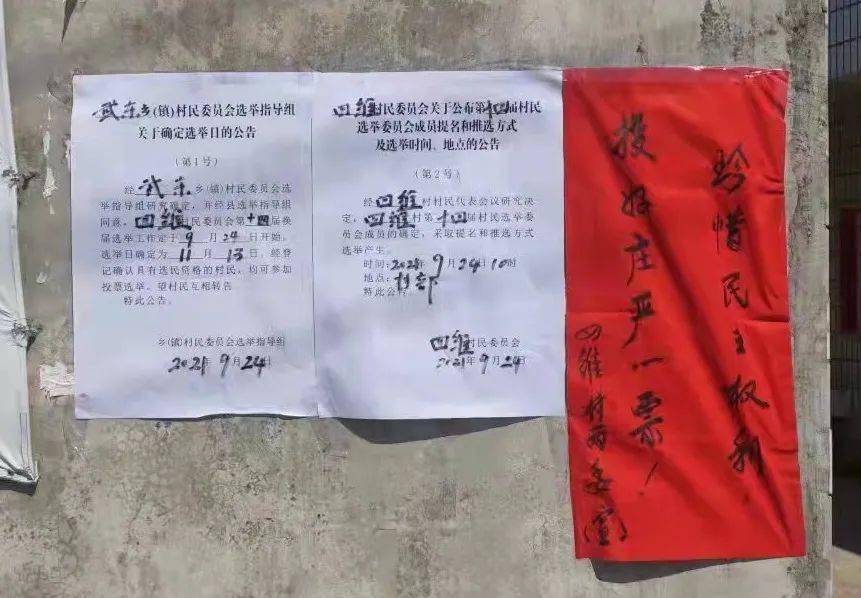 武东乡(镇)村民委员会选举指导组
关于确定选举日的公告
(第1号)
经武东乡(镇)村民委员会选
举指导组研究确定,并经县选举指导组
同意,四维村民委员会第十四届换
届选举工作定于9月24日开始,
选举日确定为11月13日。经登
记确认具有选民资格的村民,均可参加
投票选举。望村民互相转告
特此公告。
乡(镇)村民委员会选举指导组
2021年9月24日
四维村民委员会关于公布第十四届村民
选举委员会成员提名和推选方式
及选举时间、地点的公告
(第2号)
经四维村村民代表会议研究决
定,四维村第十四届村民选举委
员会成员的确定,采取提名和推选方式
选举产生。
时间:2021年9月24日10时
地点:村部
特此公告
四维村民委员会
2021年9月24日
珍惜民主权利
投好庄严一票!
四维村两委(宣)